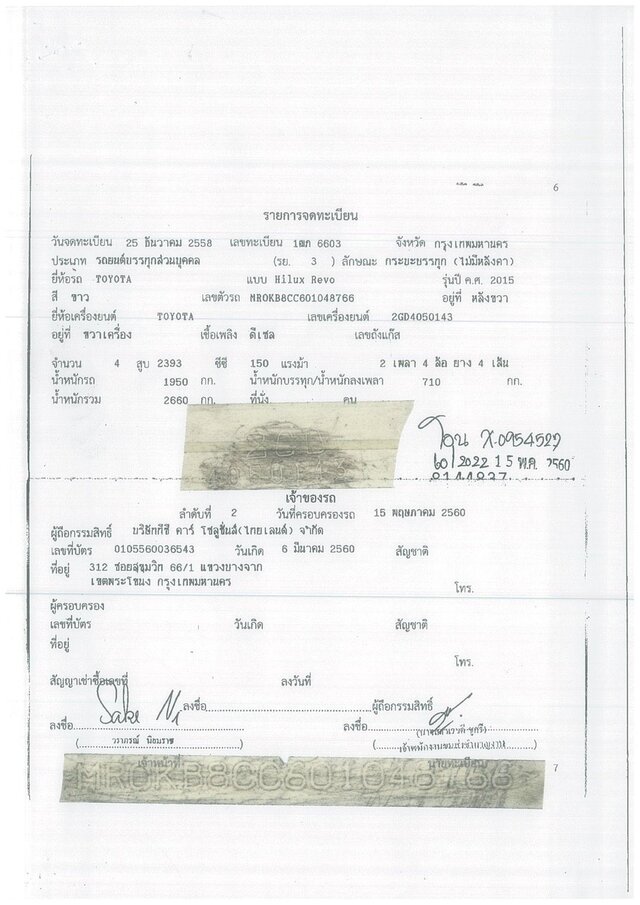 6
รายการจดทะเบียน
วันจดทะเบียน 25 ธันวาคม 2558 เลขทะเบียน 1ฒก 6603 จังหวัด กรุงเทพมหานคร
ประเภท รถยนต์บรรทุกส่วนบุคคล (รย. 3 ) ลักษณะ กระบะบรรทุก (ไม่มีหลังคา)
ยี่ห้อรถ TOYOTA แบบ Hilux Revo รุ่นปี ค.ศ. 2015
สี ขาว เลขตัวรถ MR0KB8CC601048766 อยู่ที่ หลังขวา
ยี่ห้อเครื่องยนต์ TOYOTA เลขเครื่องยนต์ 2GD4050143
อยู่ที่ ขวาเครื่อง เชื้อเพลิง ดีเซล เลขถังแก๊ส
จำนวน 4 สูบ 2393 ซีซี 150 แรงม้า 2 เพลา 4 ล้อ ยาง 4 เส้น
น้ำหนักรถ 1950 กก. น้ำหนักบรรทุก/น้ำหนักลงเพลา 710 กก.
น้ำหนักรวม 2660 กก. ที่นั่ง คน
โอน
2022 15 พ.ค. 2560
เจ้าของรถ
ลำดับที่ 2 วันที่ครอบครองรถ 15 พฤษภาคม 2560
ผู้ถือกรรมสิทธิ์ บริษัทกีซี คาร์ โซลูชั่นส์(ไทยแลนด์) จำกัด
เลขที่บัตร 0105560036543 วันเกิด 6 มีนาคม 2560 สัญชาติ
ที่อยู่ 312 ซอยสุขุมวิท 66/1 แขวงบางจาก
เขตพระโขนง กรุงเทพมหานคร
โทร.
ผู้ครอบครอง
เลขที่บัตร วันเกิด สัญชาติ
ที่อยู่
โทร.
สัญญาเช่าซื้อเลขที่ ลงวันที่
ลงชื่อ ผู้ถือกรรมสิทธิ์
ลงชื่อ ลงชื่อ
( วราภรณ์ นิยมราช )
เจ้าหน้าที่ นายทะเบียน
7
MR0KB8CC601048766